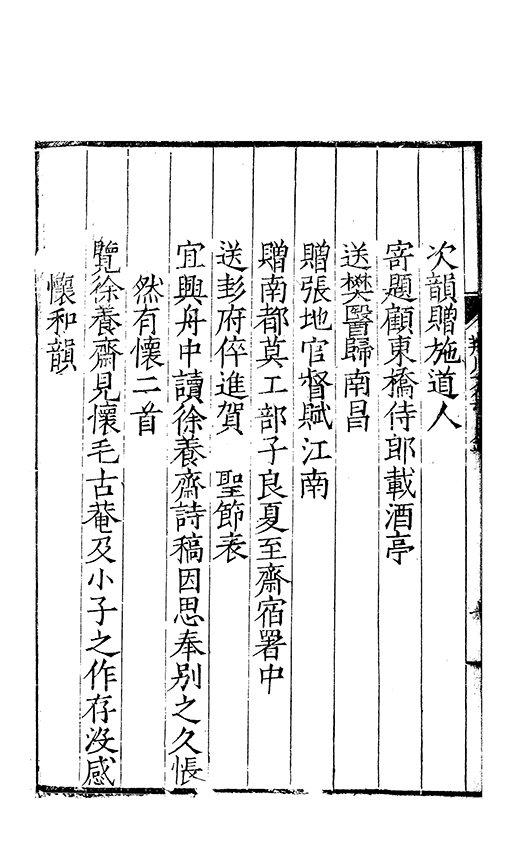 次韻贈施道人
寄題顧東橋侍郎載酒亭
送樊醫歸南昌
贈張地官督賦江南
贈南都莫工部子良夏至齋宿署中
送彭府倅進賀　聖節表
宜興舟中讀徐養齋詩稿因思奉別之久悵
然有懷二首
覽徐養齋見懷毛古菴及小子之作存沒感
懷和韻